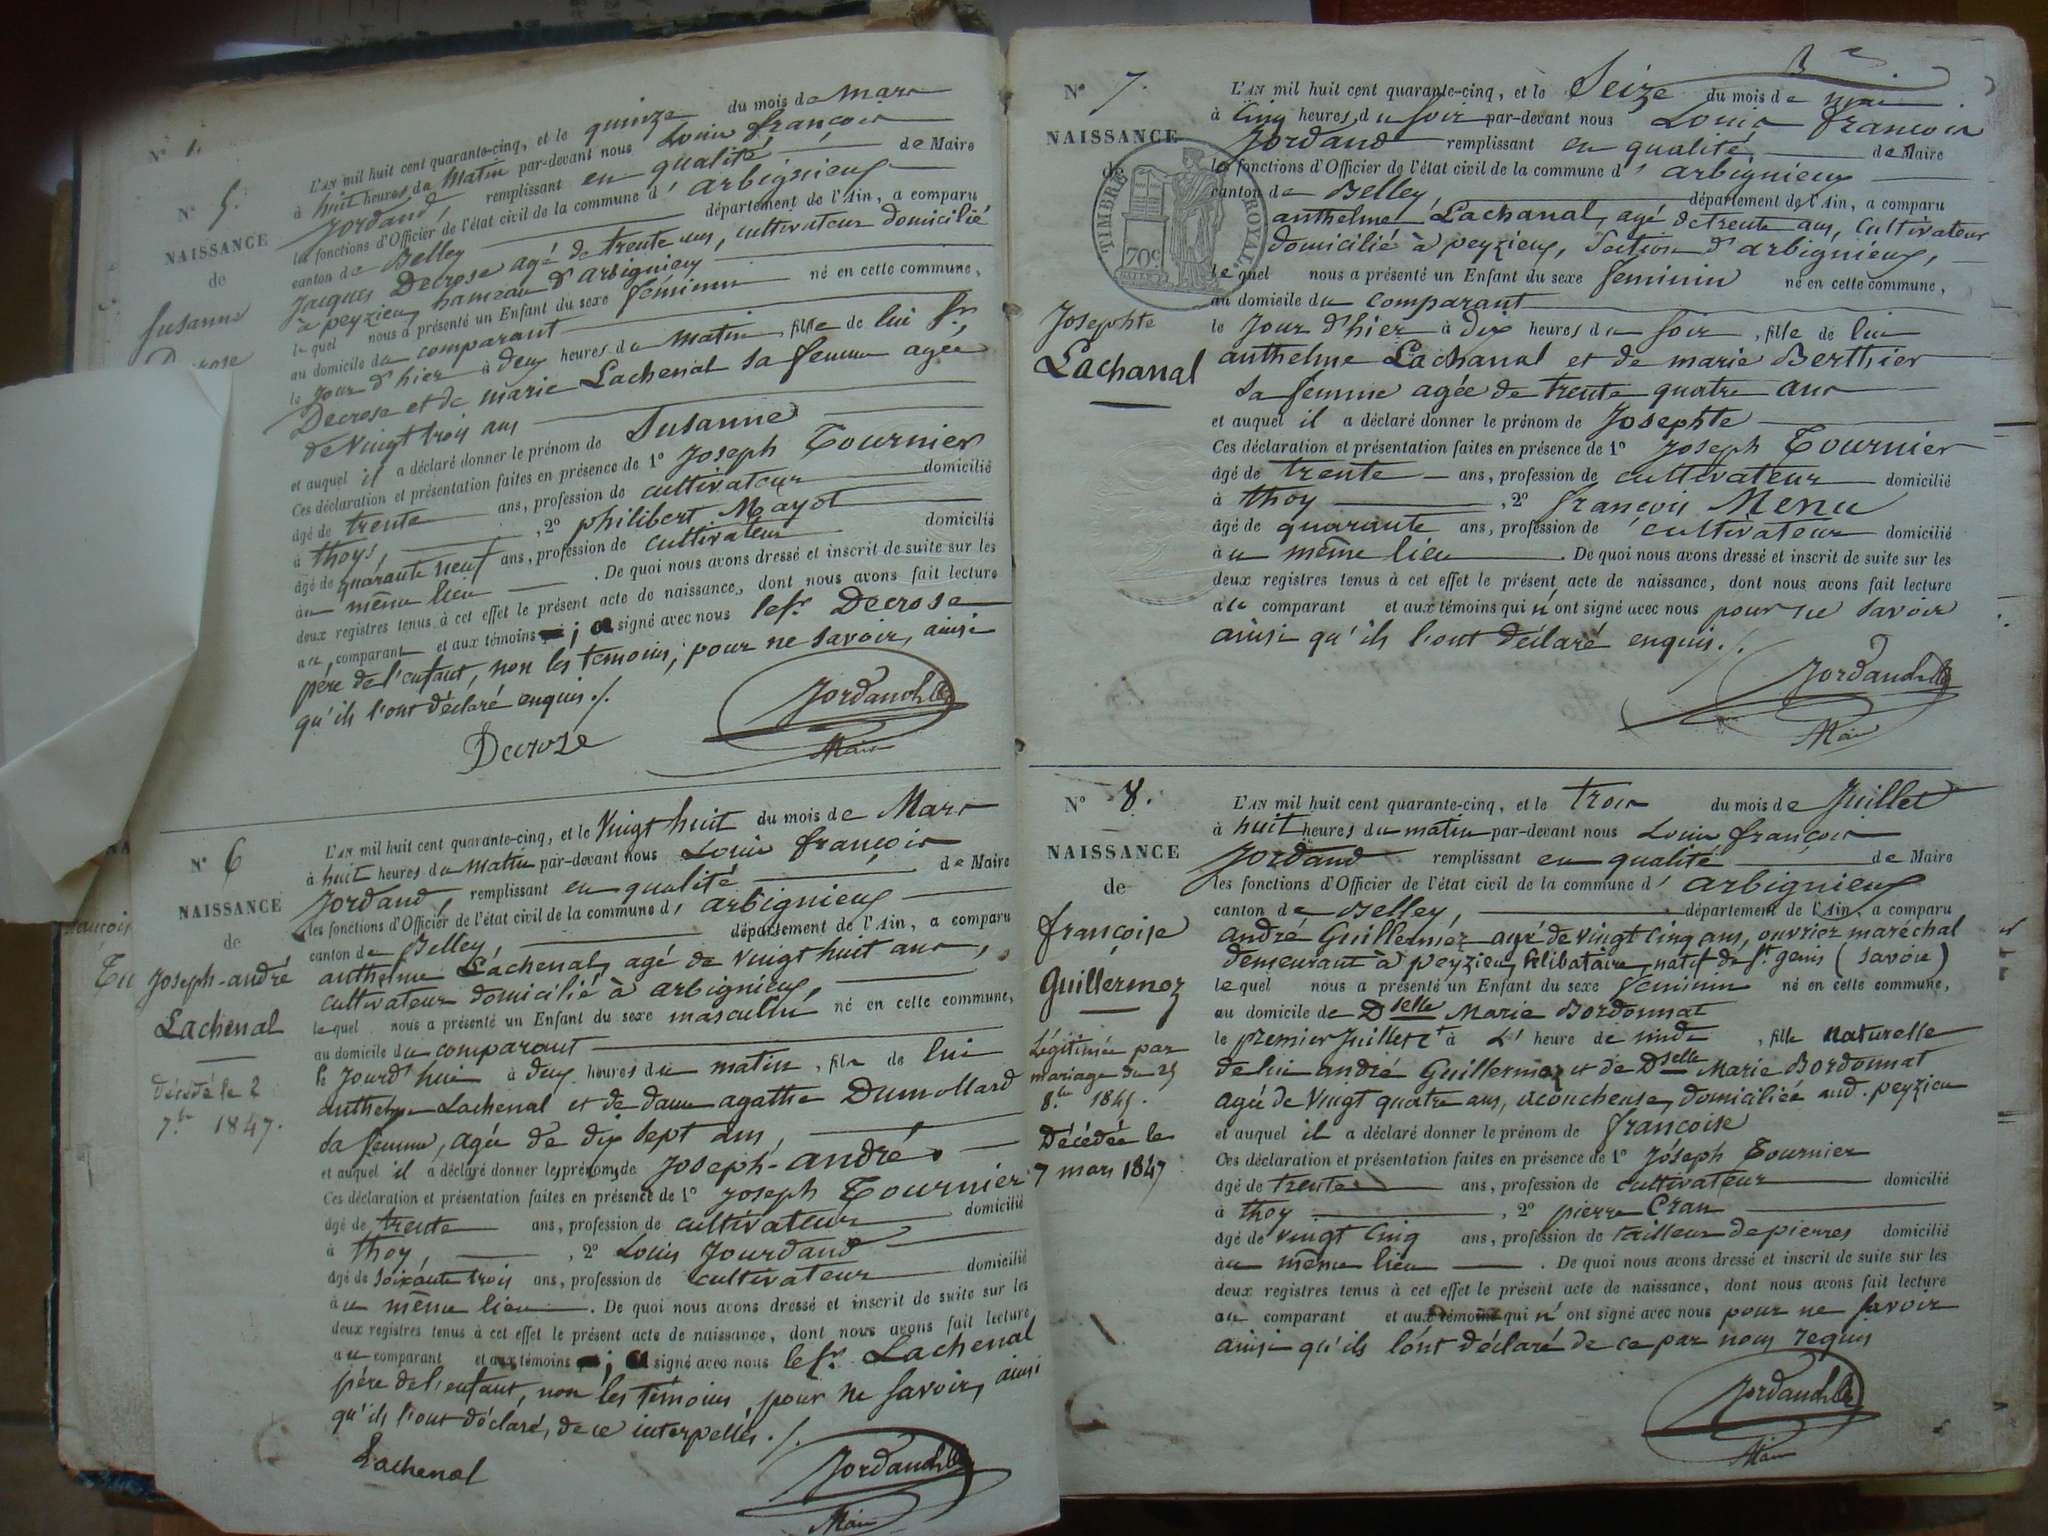 N° 5.
NAISSANCE
de
Susanne
L'AN mil huit cent quarante-cinq, et le quinze du mois de Mars
à huit heures du Matin par-devant nous Louis françois
Jordand remplissant en qualité de Maire
les fonctions d'Officier de l'état civil de la commune d' arbignieux
canton de Belley département de l'Ain, a comparu
Jacques Decrose agé de trente ans, cultivateur domicilié
à peyzieu hameau d'arbignieu
lequel nous a présenté un Enfant du sexe féminin né en cette commune,
au domicile du comparant
le Jour d'hier à deux heures du matin, fille de lui Sr
Decrose et de marie Lachenal sa femme agée
de vingt trois ans
et auquel il a déclaré donner le prénom de Susanne
Ces déclaration et présentation faites en présence de 1° Joseph Tournier
âgé de trente ans, profession de cultivateur domicilié
à thoys, 2° philibert Mayot
âgé de quarante neuf ans, profession de cultivateur domicilié
au même lieu. De quoi nous avons dressé et inscrit de suite sur les
deux registres tenus à cet effet le présent acte de naissance, dont nous avons fait lecture
au comparant et aux témoins ; a signé avec nous le Sr Decrose
père de l'enfant, non les témoins, pour ne savoir, ainsi
qu'ils l'ont déclaré enquis ./.
Decroze
Jordand
Maire
N° 6
NAISSANCE
de
Joseph-andré
Lachenal
Décédé le 2
7.bre 1847.
L'AN mil huit cent quarante-cinq, et le Vingt huit du mois de Mars
à huit heures du matin par-devant nous Louis françois
Jordand, remplissant en qualité de Maire
les fonctions d'Officier de l'état civil de la commune d' arbignieux
canton de Belley, département de l'Ain, a comparu
anthelme Lachenal, agé de vingt huit ans,
cultivateur domicilié à arbignieux,
lequel nous a présenté un Enfant du sexe masculin né en cette commune,
au domicile du comparant
le Jourd'hui à deux heures du matin, fils de lui
anthelme Lachenal et de dame agathe Dumollard
sa femme, agée de dix sept ans,
et auquel il a déclaré donner les prénoms de Joseph-andré.
Ces déclaration et présentation faites en présence de 1° Joseph Tournier
âgé de trente ans, profession de cultivateur domicilié
à thoy, 2° Louis Jourdand
âgé de soixante trois ans, profession de cultivateur domicilié
au même lieu. De quoi nous avons dressé et inscrit de suite sur les
deux registres tenus à cet effet le présent acte de naissance, dont nous avons fait lecture
au comparant et aux témoins ; a signé avec nous le Sr. Lachenal
père de l'enfant, non les témoins, pour ne savoir, ainsi
qu'ils l'ont déclaré, de ce interpellés ./.
Lachenal
Jordand
Maire
N° 7.
NAISSANCE
de
TIMBRE ROYAL
70c
Josephte
Lachanal
L'AN mil huit cent quarante-cinq, et le Seize du mois de mai
à Cinq heures du soir par-devant nous Louis françois
Jordand remplissant en qualité de Maire
les fonctions d'Officier de l'état civil de la commune d' arbignieux
canton de Belley département de l'Ain, a comparu
anthelme Lachanal, agé de trente ans, Cultivateur
domicilié à peyzieux, Section d'arbignieux,
lequel nous a présenté un Enfant du sexe feminin né en cette commune,
au domicile du comparant
le Jour d'hier à dix heures du soir, fille de lui
anthelme Lachanal et de marie Berthier
sa femme agée de trente quatre ans
et auquel il a déclaré donner le prénom de Josephte
Ces déclaration et présentation faites en présence de 1° Joseph Tournier
âgé de trente ans, profession de cultivateur domicilié
à thoy, 2° françois Menu
âgé de quarante ans, profession de cultivateur domicilié
au même lieu. De quoi nous avons dressé et inscrit de suite sur les
deux registres tenus à cet effet le présent acte de naissance, dont nous avons fait lecture
au comparant et aux témoins qui n'ont signé avec nous pour ne savoir
ainsi qu'ils l'ont déclaré enquis ./.
Jordand
Maire
N° 8.
NAISSANCE
de
françoise
Guillermoz
Légitimée par
mariage du 25
8.bre 1845.
Décédée le
7 mars 1847
L'AN mil huit cent quarante-cinq, et le trois du mois de Juillet
à huit heures du matin par-devant nous Louis françois
Jordand remplissant en qualité de Maire
les fonctions d'Officier de l'état civil de la commune d' arbignieux
canton de Belley, département de l'Ain, a comparu
andré Guillermoz agé de vingt cinq ans, ouvrier maréchal
demeurant à peyzieu, Célibataire, natif de St. genis (Savoie)
lequel nous a présenté un Enfant du sexe féminin né en cette commune,
au domicile de Dselle Marie Bordonnat
le premier Juillet à l' heure de midi, fille naturelle
de lui andré Guillermoz et de Dselle Marie Bordonnat
agée de Vingt quatre ans, acoucheuse, domiciliée aud. peyzieu
et auquel il a déclaré donner le prénom de françoise
Ces déclaration et présentation faites en présence de 1° Joseph Tournier
âgé de trente ans, profession de cultivateur domicilié
à thoy, 2° pierre Cran
âgé de vingt cinq ans, profession de tailleur de pierres domicilié
au même lieu. De quoi nous avons dressé et inscrit de suite sur les
deux registres tenus à cet effet le présent acte de naissance, dont nous avons fait lecture
au comparant et aux témoins qui n'ont signé avec nous pour ne savoir
ainsi qu'ils l'ont déclaré de ce par nous requis
Jordand
Maire